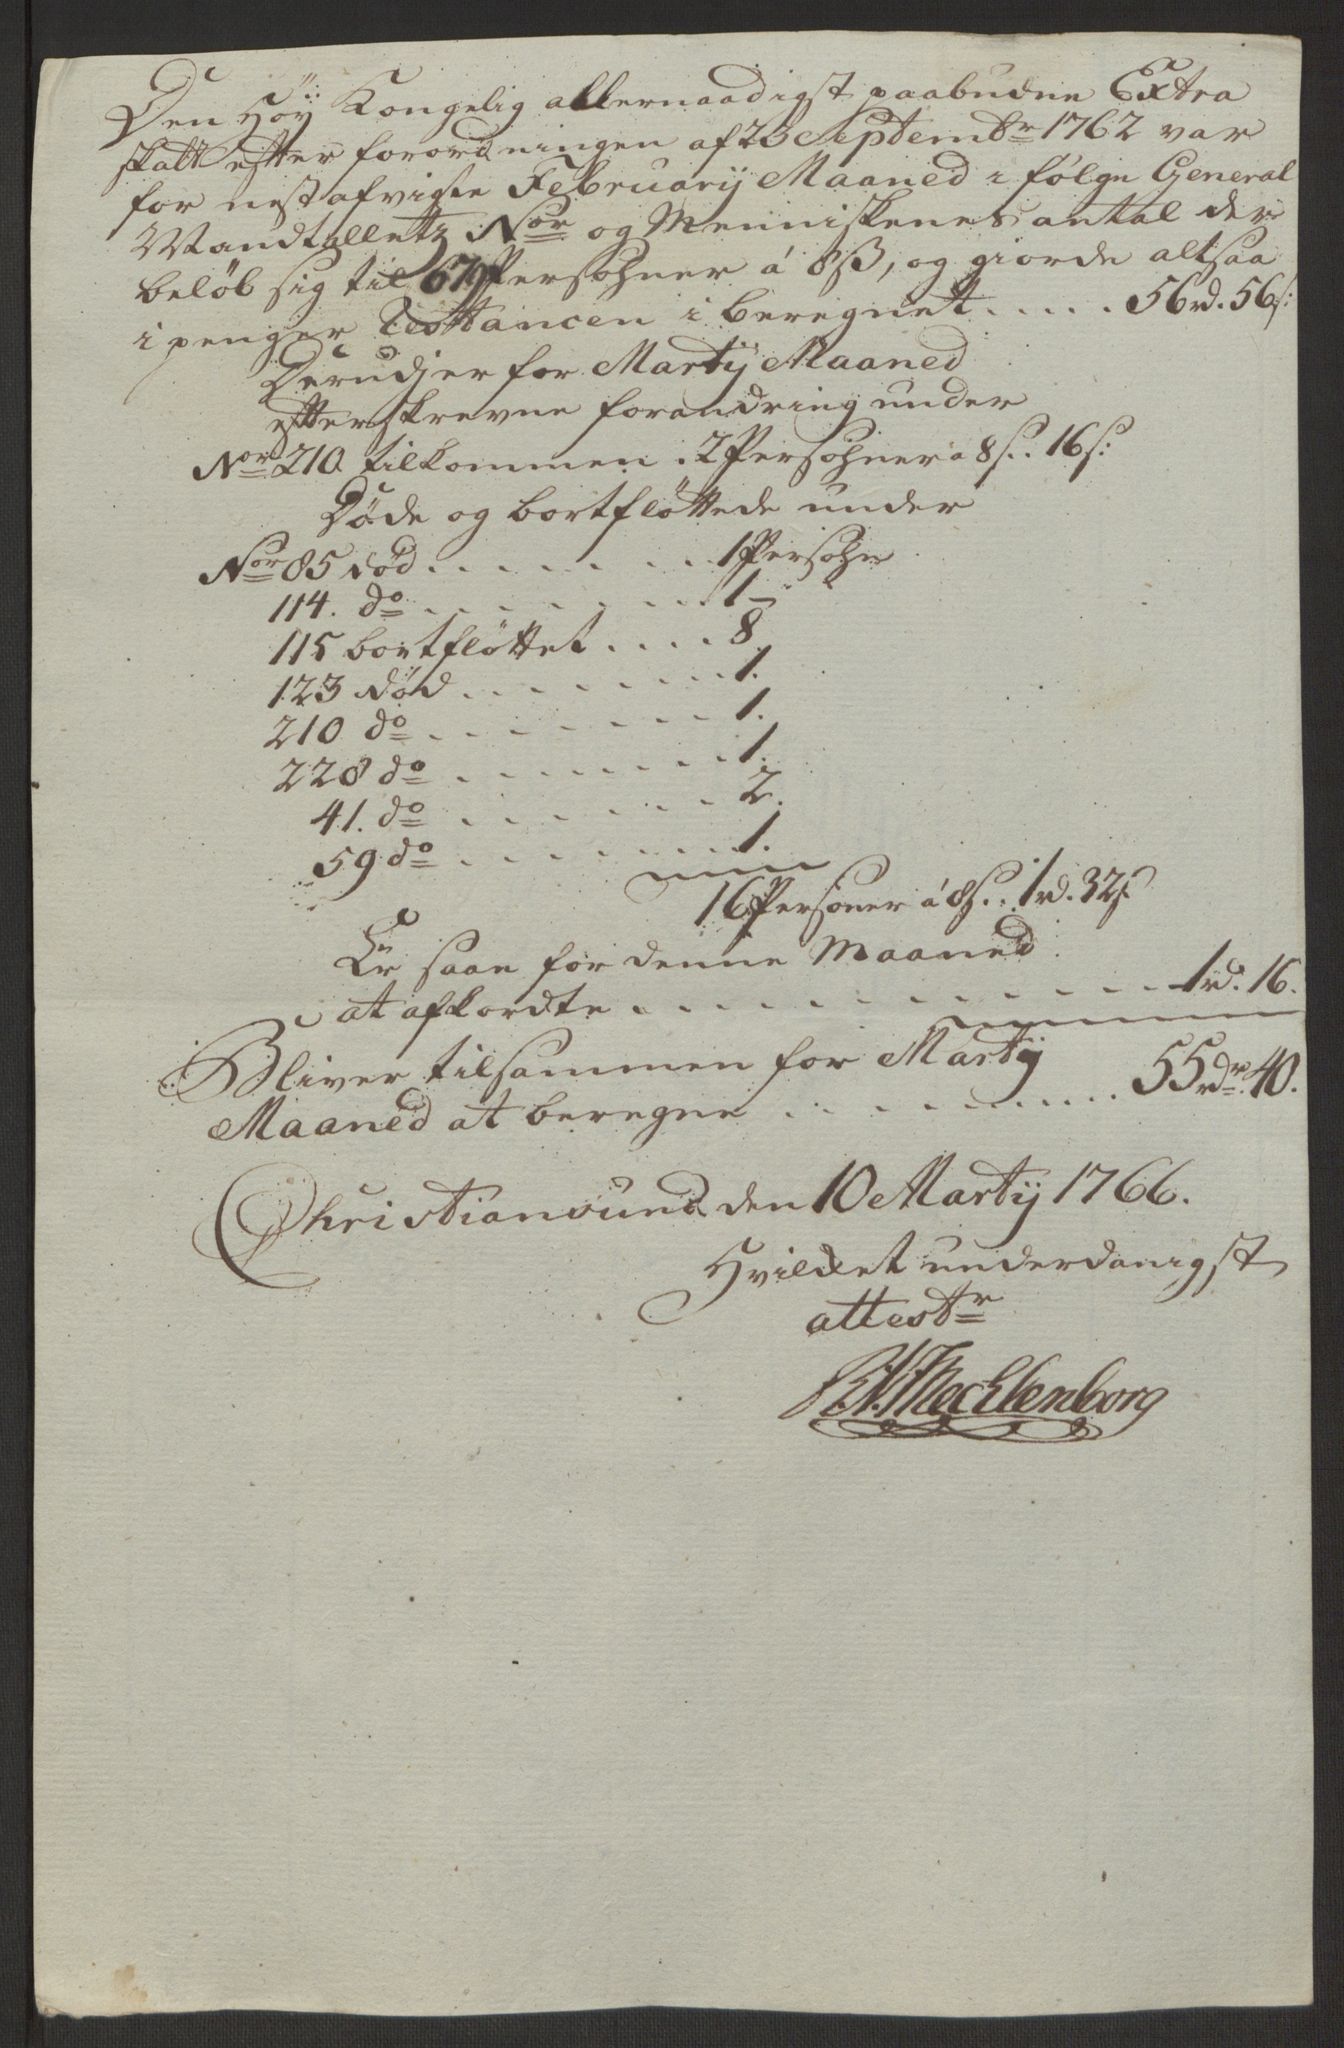 Den Höÿ Kongelig allernaadigst paabudne Extra
skatt efter forordningen af 23 Septembr 1762 var
for nest afvigte Februarij Maaned i følge General
Mandtallets Nor og Menniskenes antal der
beløb sig til 679 Persohner á 8ß, og giorde altsaa
i penger Restancen i beregnet . . . . . 56 rd. 56 s:
Derudj er for Martij Maaned
efterskrevne forandring under
Nor 210 tilkommen . 2 Persohner a 8 s. . 16 s:
Døde og bortfløttede under
Nor 85 død . . . . . . . . 1 Persohn
114. do . . . . . . . . 1 -
115 bortfløttet . . . . 8.
123 død . . . . . . . . 1.
210 do . . . . . . . . 1.
228 do . . . . . . . . 1.
41. do . . . . . . . . 2.
59 do . . . . . . . . 1.
16 Personer á 8 s. . . 1 rd. 32 s.
Er saan for denne Maaned
at afkordte . . . . . . . . . . . . 1 rd. 16.
Bliver tilsammen for Martij
Maaned at beregne . . . . . . . . . . 55 rdr. 40.
Christiansund den 10 Martij 1766.
Hvilket underdanigst
attestr
Mechlenborg